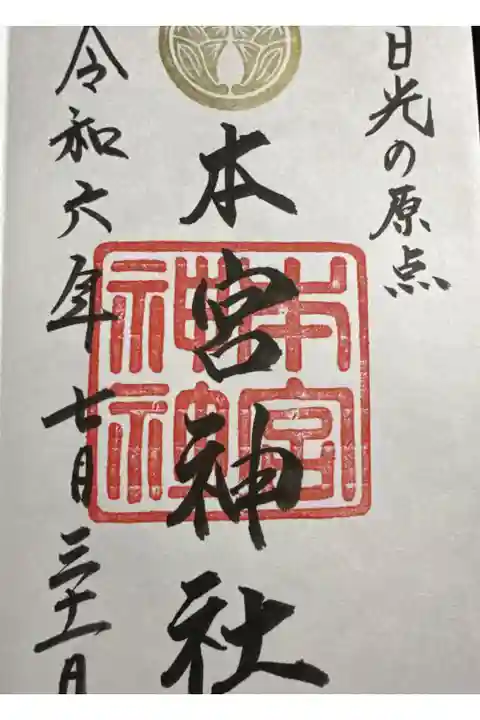 日光の原点
本宮神社
令和六年七月三十一日
本宮
神社